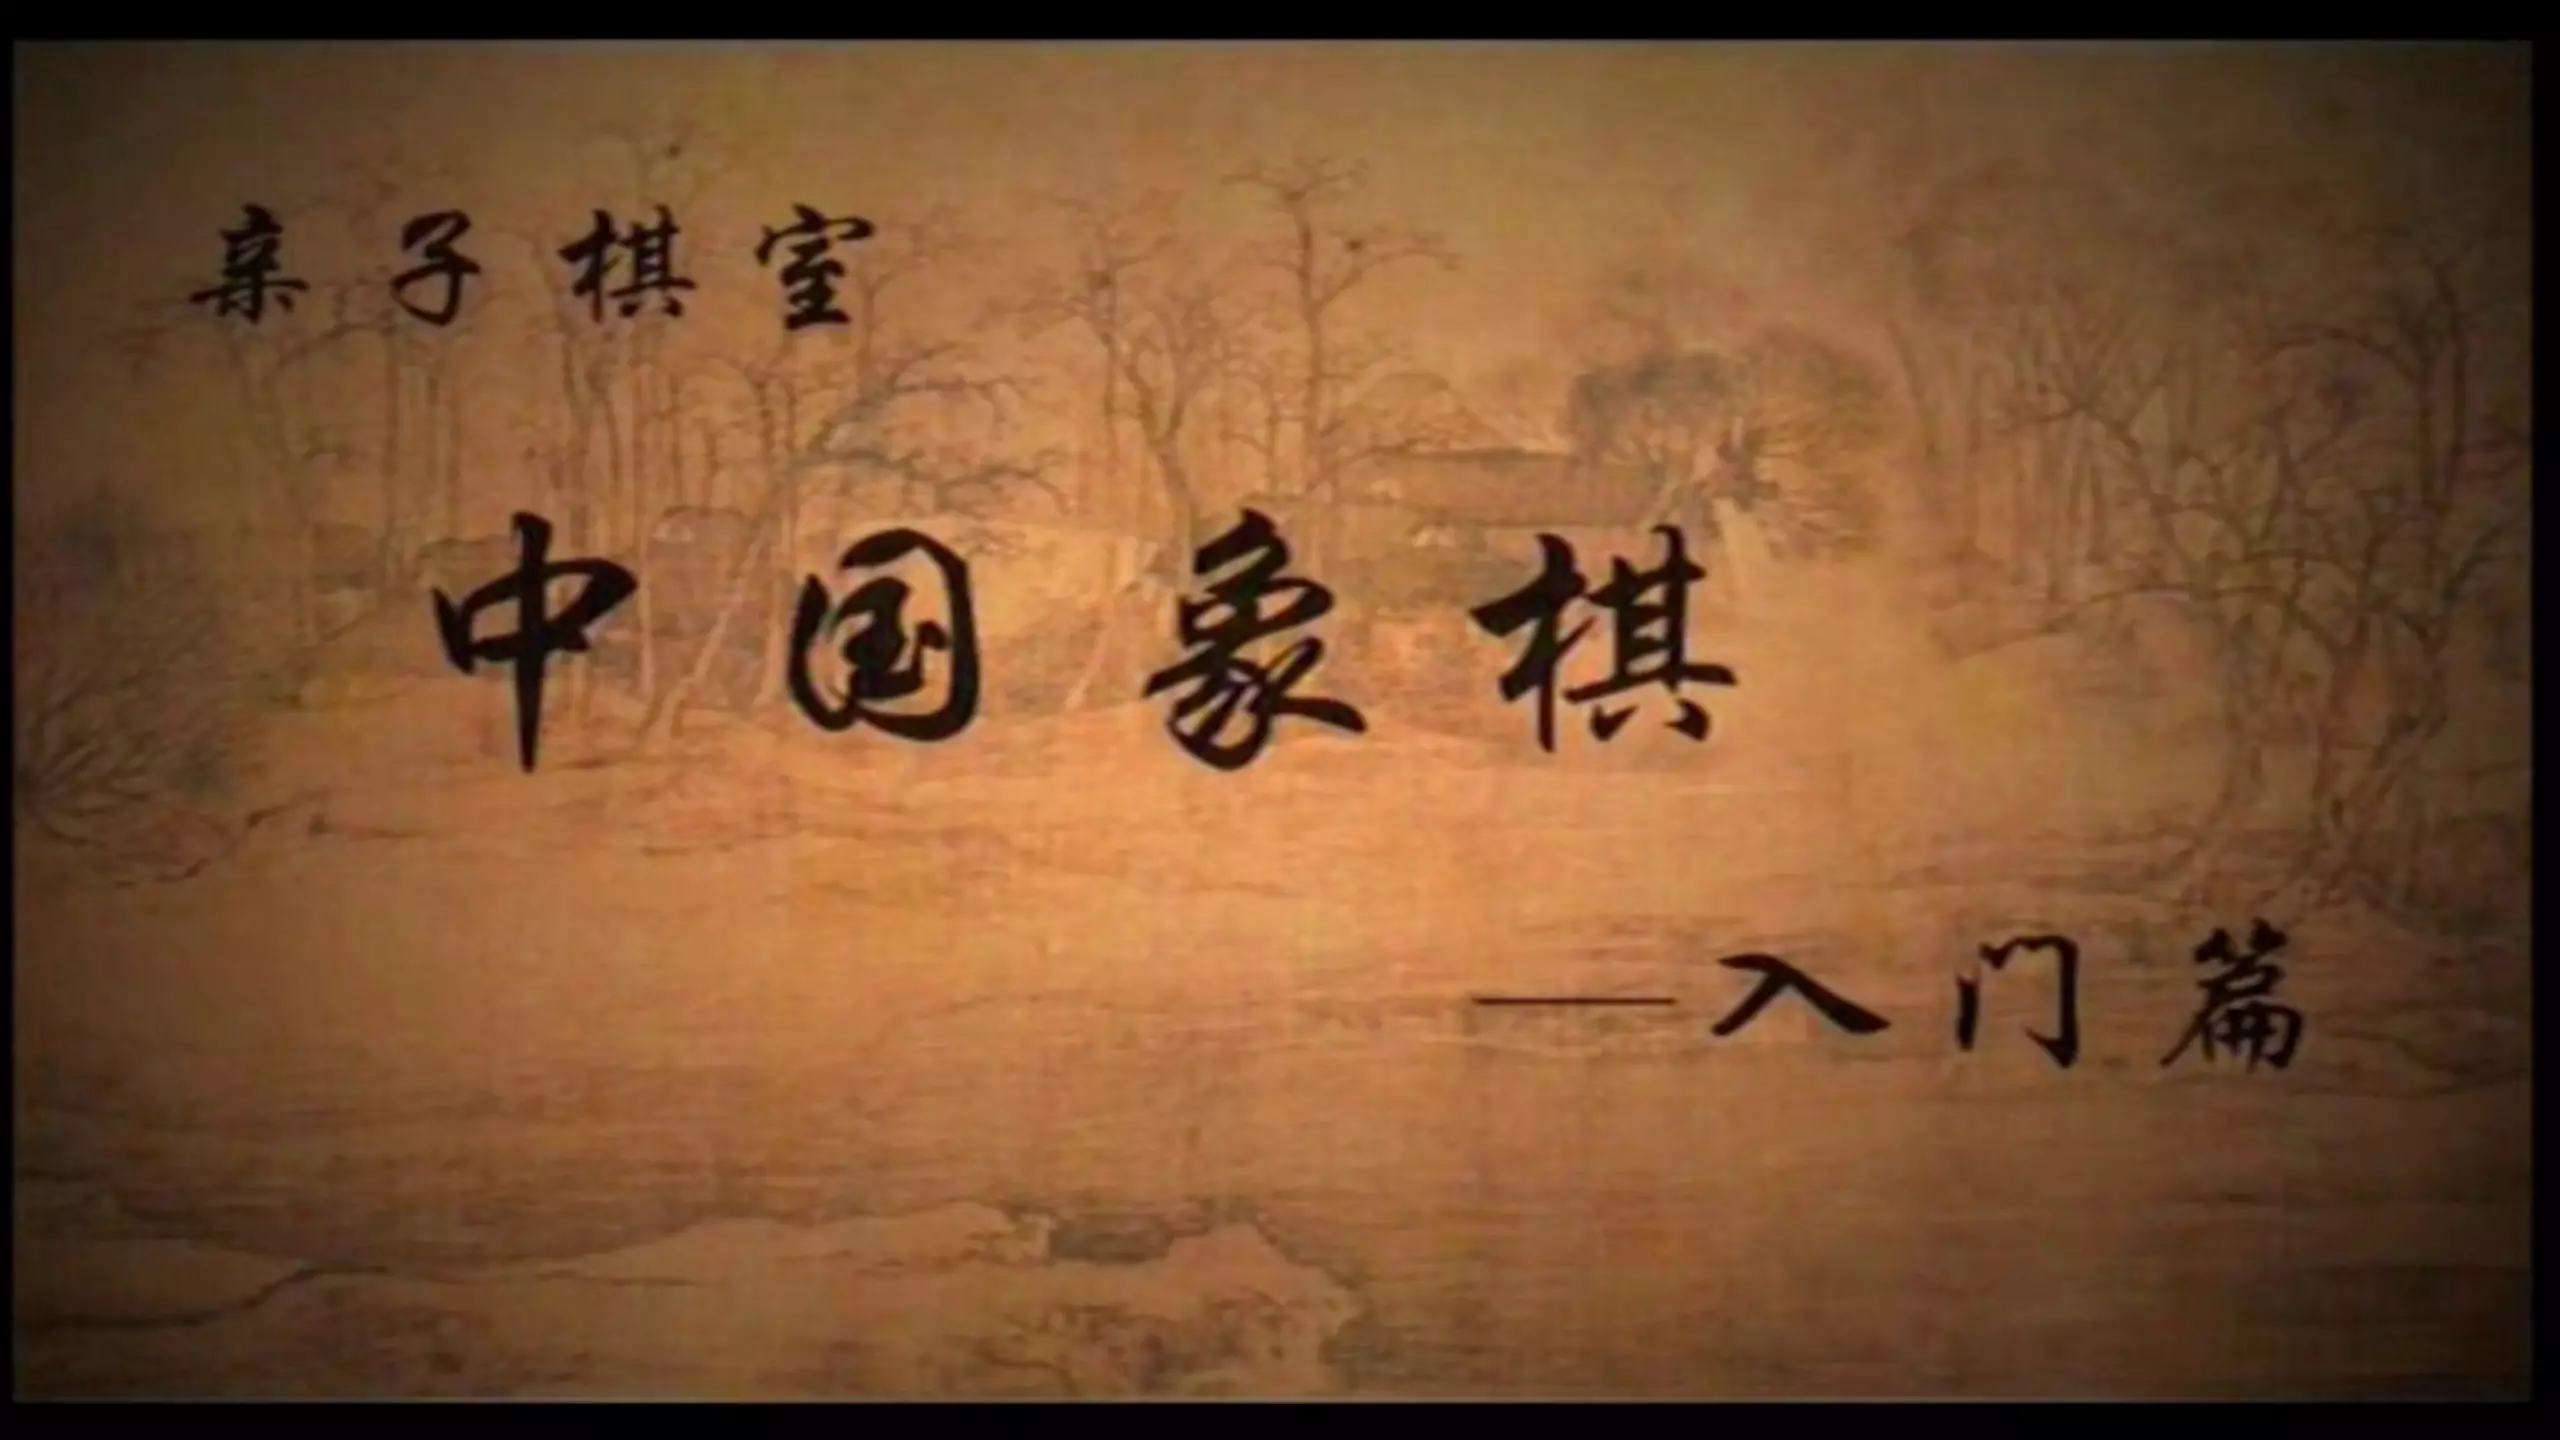 亲子棋室
中国象棋
—入门篇